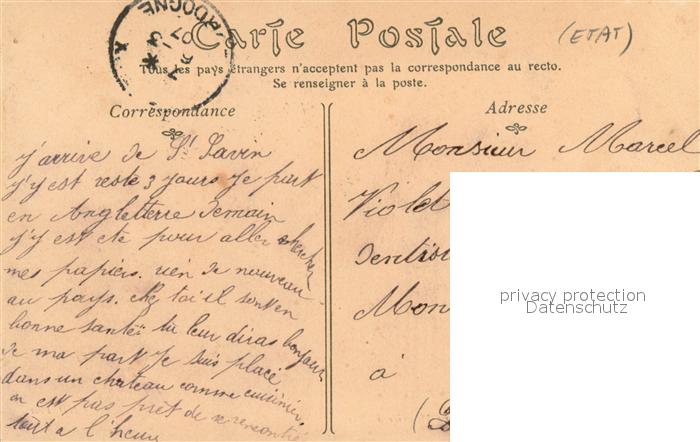 Carte Postale
(ETAT)
Tous les pays étrangers n'acceptent pas la correspondance au recto.
Se renseigner à la poste.
Correspondance
Adresse
j'arrive de St Savin
j'y est reste 3 jours Je part
en Angleterre demain
j'y est ete pour aller chercher
mes papiers. rien de nouveau
au pays. chez toi il sont en
bonne santé tu leur diras bonjour
de ma part Je suis placé
dans un chateau comme cuisinier
on est pas pret de se rencontré
tout a l'heure
Monsieur Marcel
Violet
Mon
à
privacy protection
Datenschutz